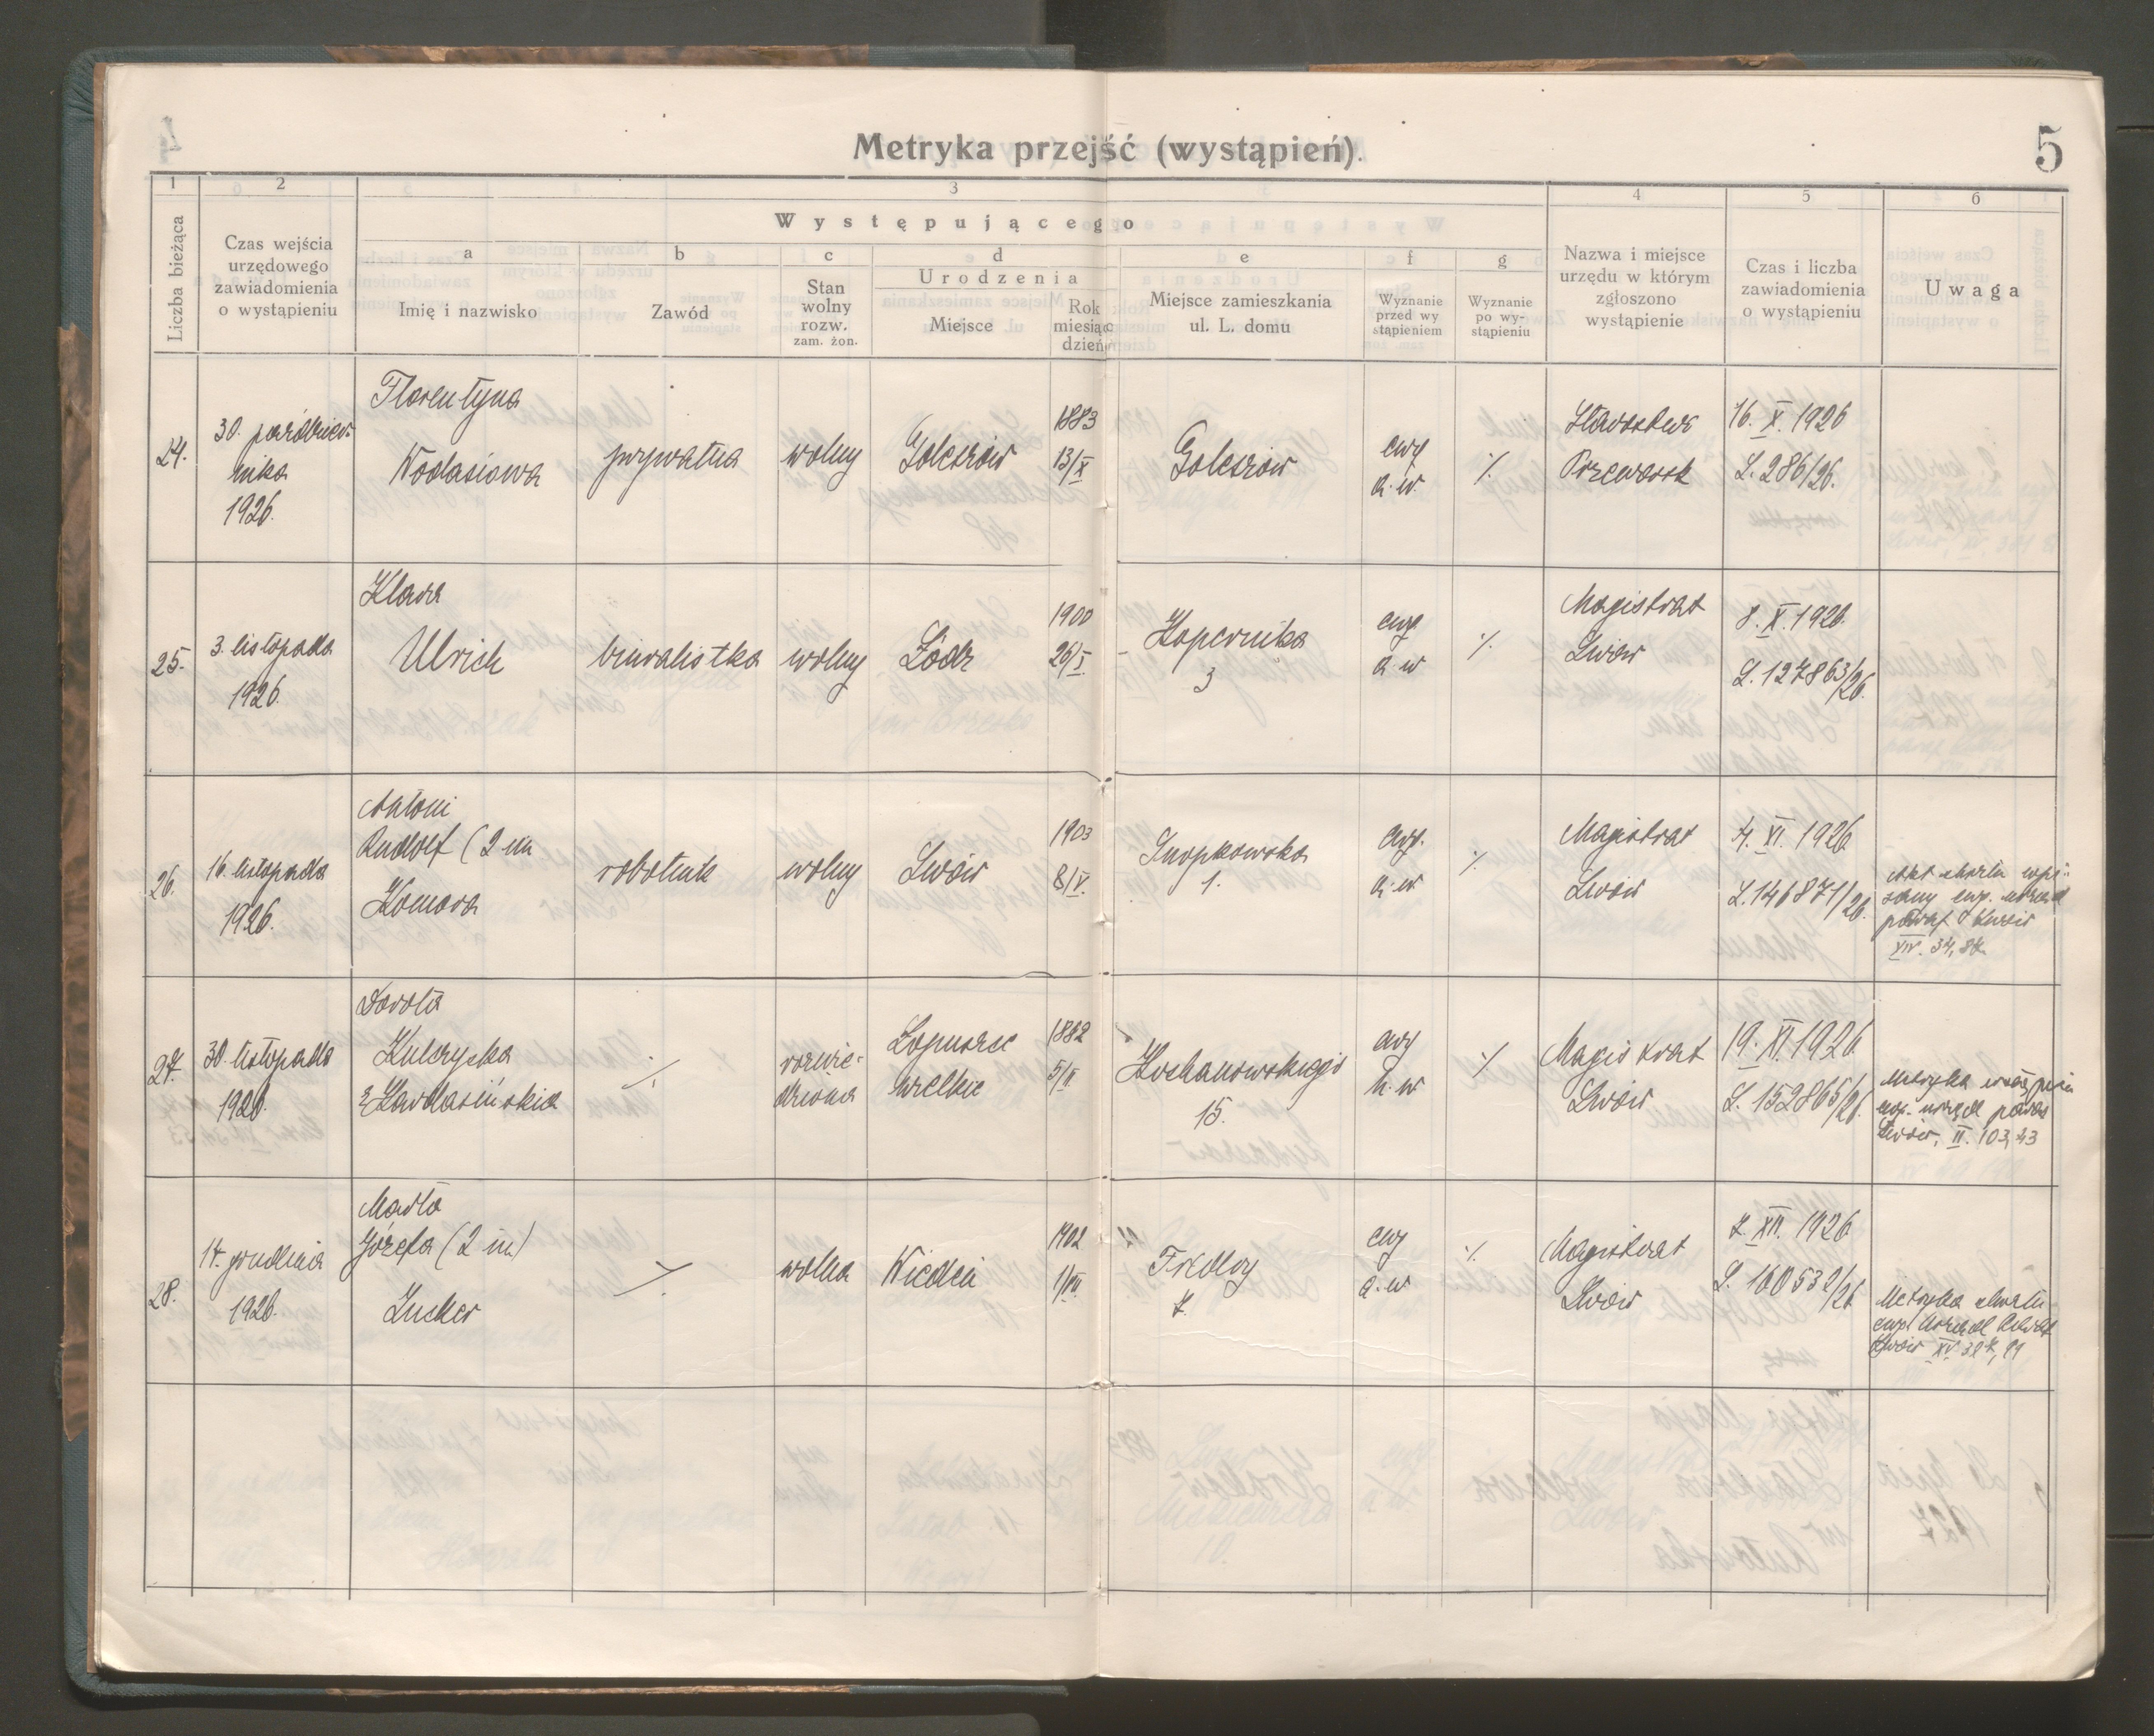 Metryka przejść (wystąpień).
5
1
2
3
4
5
6
Liczba bieżąca
Czas wejścia
urzędowego
zawiadomienia
o wystąpieniu
Występującego
a
Imię i nazwisko
b
Zawód
c
Stan
wolny
rozw.
zam. żon.
d
Urodzenia
Miejsce
Rok
miesiąc
dzień
e
Miejsce zamieszkania
ul. L. domu
f
Wyznanie
przed wy
stąpieniem
g
Wyznanie
po wy-
stąpieniu
Nazwa i miejsce
urzędu w którym
zgłoszono
wystąpienie
Czas i liczba
zawiadomienia
o wystąpieniu
Uwaga
24.
30. paździer-
nika
1926.
Florentyna
Wodasiowa
prywatna
wolny
Goleszów
1883
13/X
Goleszów
ewg
a. w.
%
Starostwo
Przeworsk
16. X. 1926
L. 286/26.
25.
3. listopada
1926.
Klara
Ulrich
biuralistka
wolny
Łódz
1900
26/I.
Kopernika
3
ewg
a. w
%
Magistrat
Lwów
8. X. 1926.
L. 127863/26.
26.
16. listopada
1926.
Antoni
Rudolf (2 im
Komora
robotnik
wolny
Lwów
1903
8/V.
Snopkowska
1.
ewg.
a. w
%
Magistrat
Lwów
4. XI. 1926
L. 146871/26.
Akt chrztu wpi-
sany ewg. urząd
paraf. Lwów
XIV. 34, 87
27.
30. listopada
1926.
Dorota
Kulczycka
z Kardasińskich
%
rozwie-
dziona
Łopuszec
wielkie
1882
5/II
Kochanowskiego
15.
ewg
h. w
%
Magistrat
Lwów
19. XI. 1926
L. 152865/26.
Metryka
ewg. urząd paraf
Lwów, II. 103, 43
28.
14. grudnia
1926.
Marta
Józefa (2 im)
Zucker
%
wolna
Wiedeń
1902
1/VII.
Fredry
7.
ewg
a. w
%
Magistrat
Lwów
7. XII. 1926
L. 160532/26
Metryka chrztu
ewg. Urząd Paraf
Lwów XV.